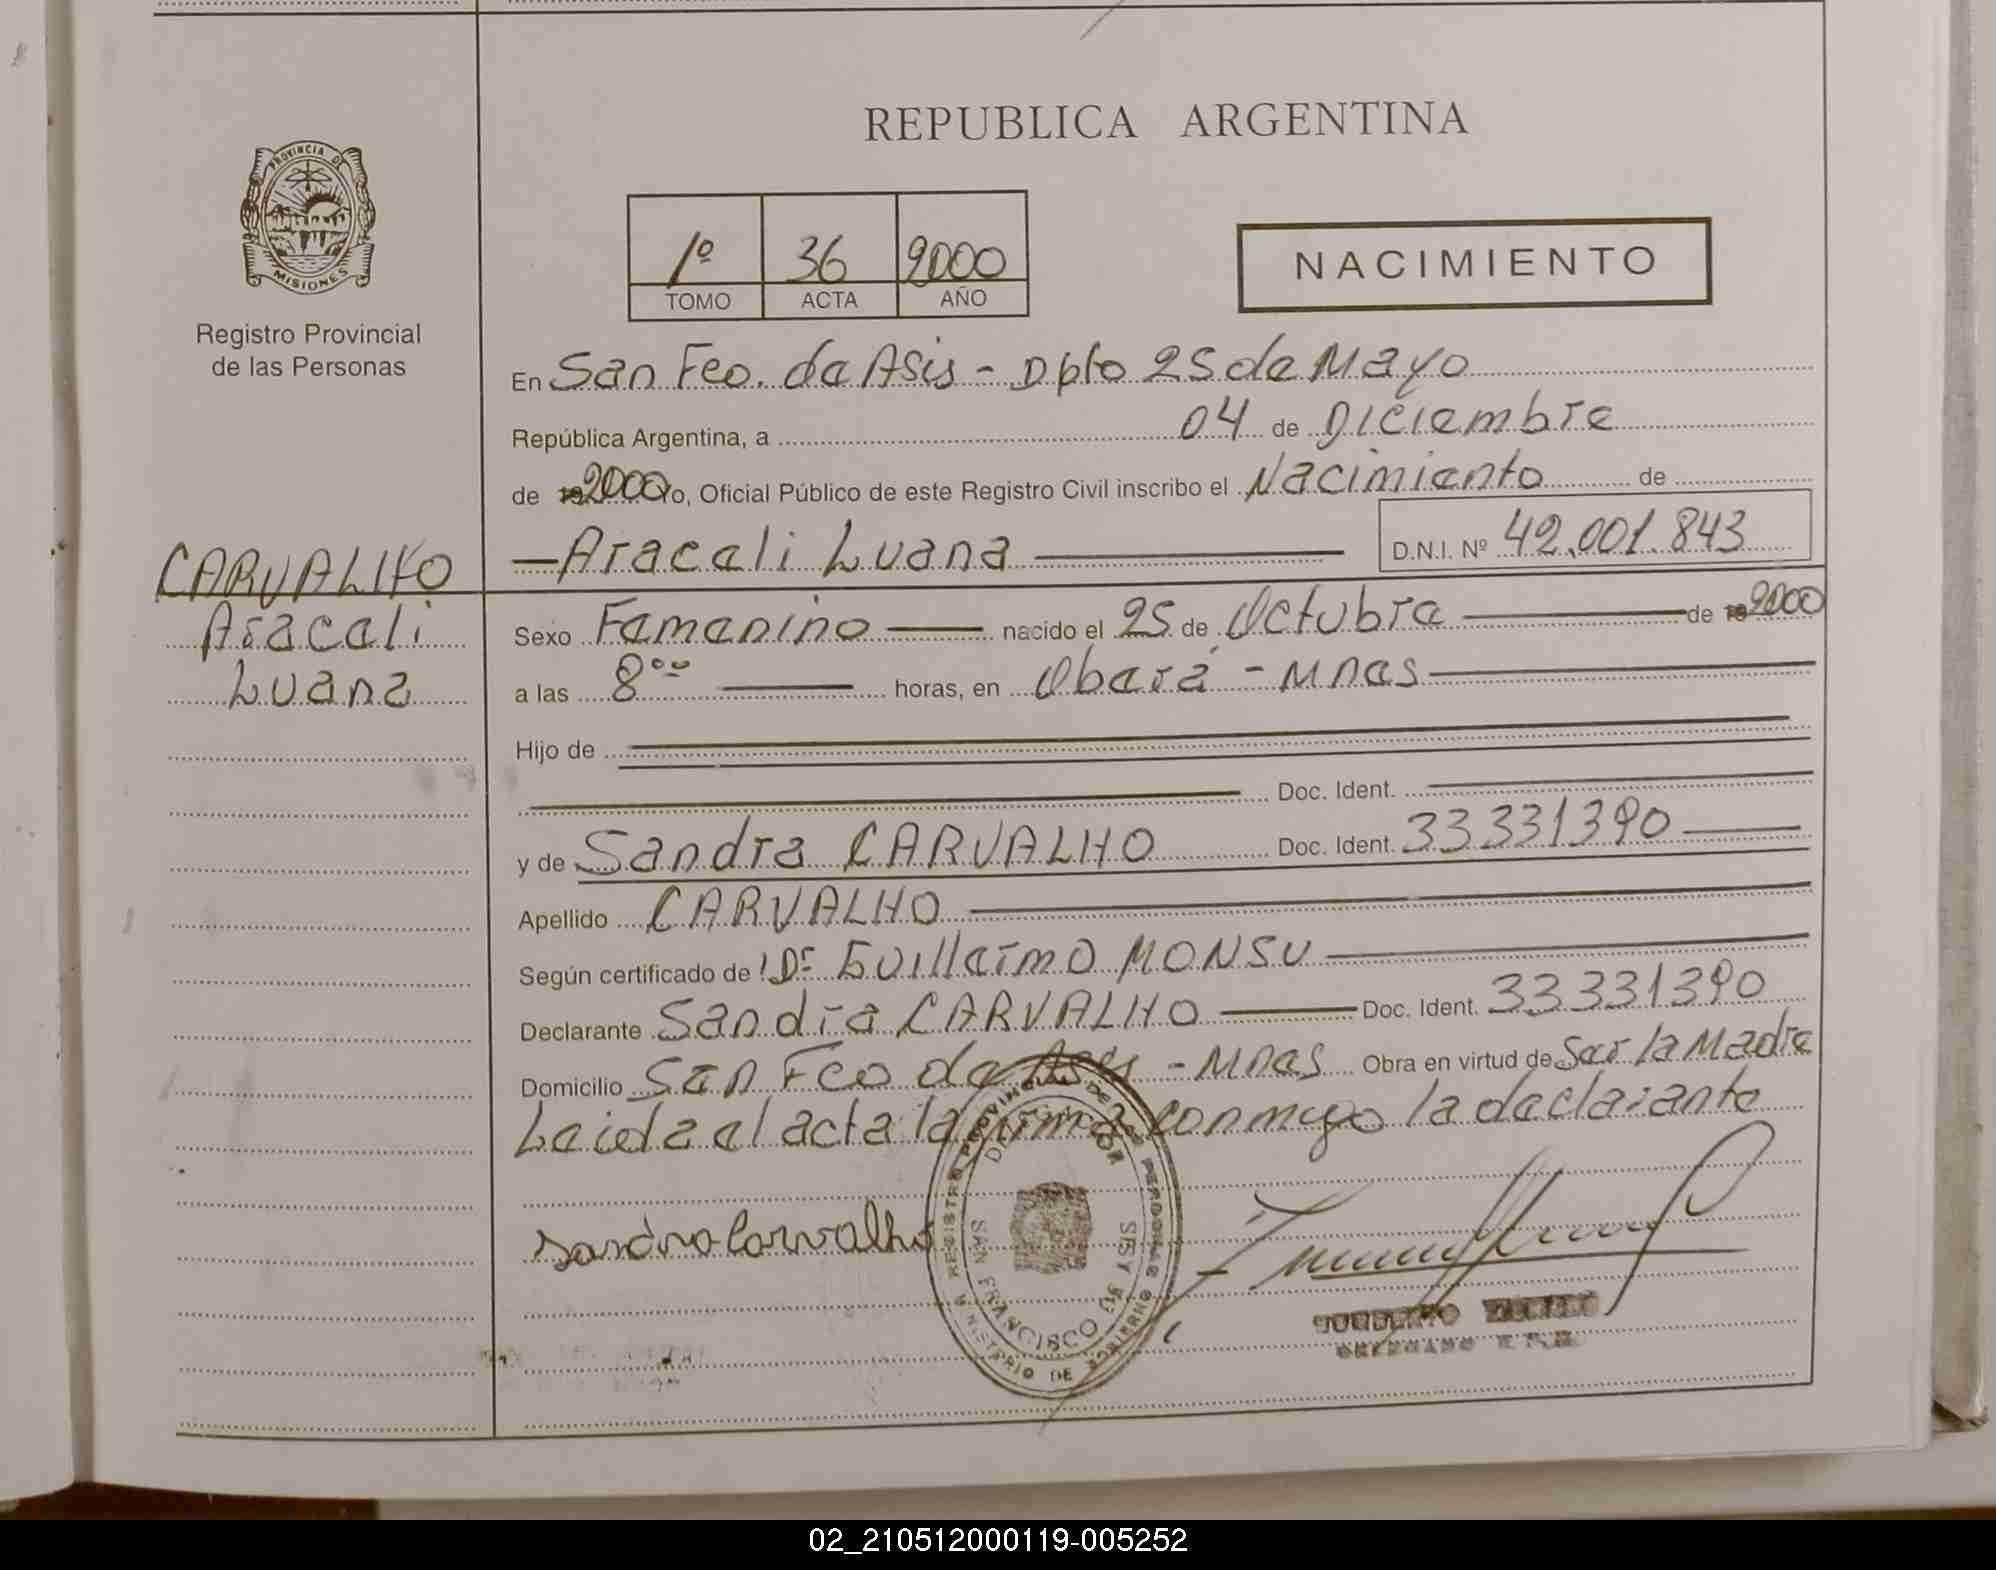 REPUBLICA ARGENTINA
PROVINCIA DE
MISIONES
Registro Provincial
de las Personas
1º 36 2000
TOMO ACTA AÑO
NACIMIENTO
En San Fco. de Asis - Dpto 25 de Mayo
República Argentina, a 04 de Diciembre
de 2000 yo, Oficial Público de este Registro Civil inscribo el Nacimiento de
Araceli Luana D.N.I. Nº 42.001.843
CARVALHO
Araceli
Luana
Sexo Femenino nacido el 25 de Octubre de 2000
a las 8°° horas, en Oberá - Mnes
Hijo de
Doc. Ident.
y de Sandra CARVALHO Doc. Ident. 33331390
Apellido CARVALHO
Según certificado de Dr Guillermo MONSU
Declarante Sandra CARVALHO Doc. Ident. 33331390
Domicilio San Fco de Asis - Mnes Obra en virtud de Ser la Madre
Leida el acta la firma conmigo la declarante
Sandra Carvalho
REGISTRO PROVINCIAL DE LAS PERSONAS
MINISTERIO DE
SAN FRANCISCO
02_210512000119-005252